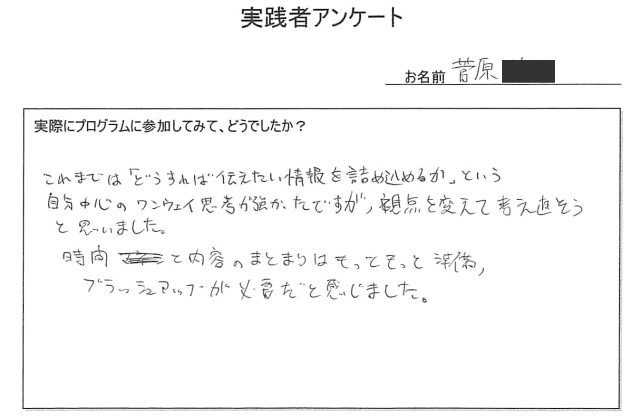 実践者アンケート
お名前 菅原
実際にプログラムに参加してみて、どうでしたか？
これまでは「どうすれば伝えたい情報を詰め込めるか」という
自分中心のワンウェイ思考が強かったですが、観点を変えて考え直そう
と思いました。
時間 と内容のまとまりはもってもっと準備、
ブラッシュアップが必要だと感じました。